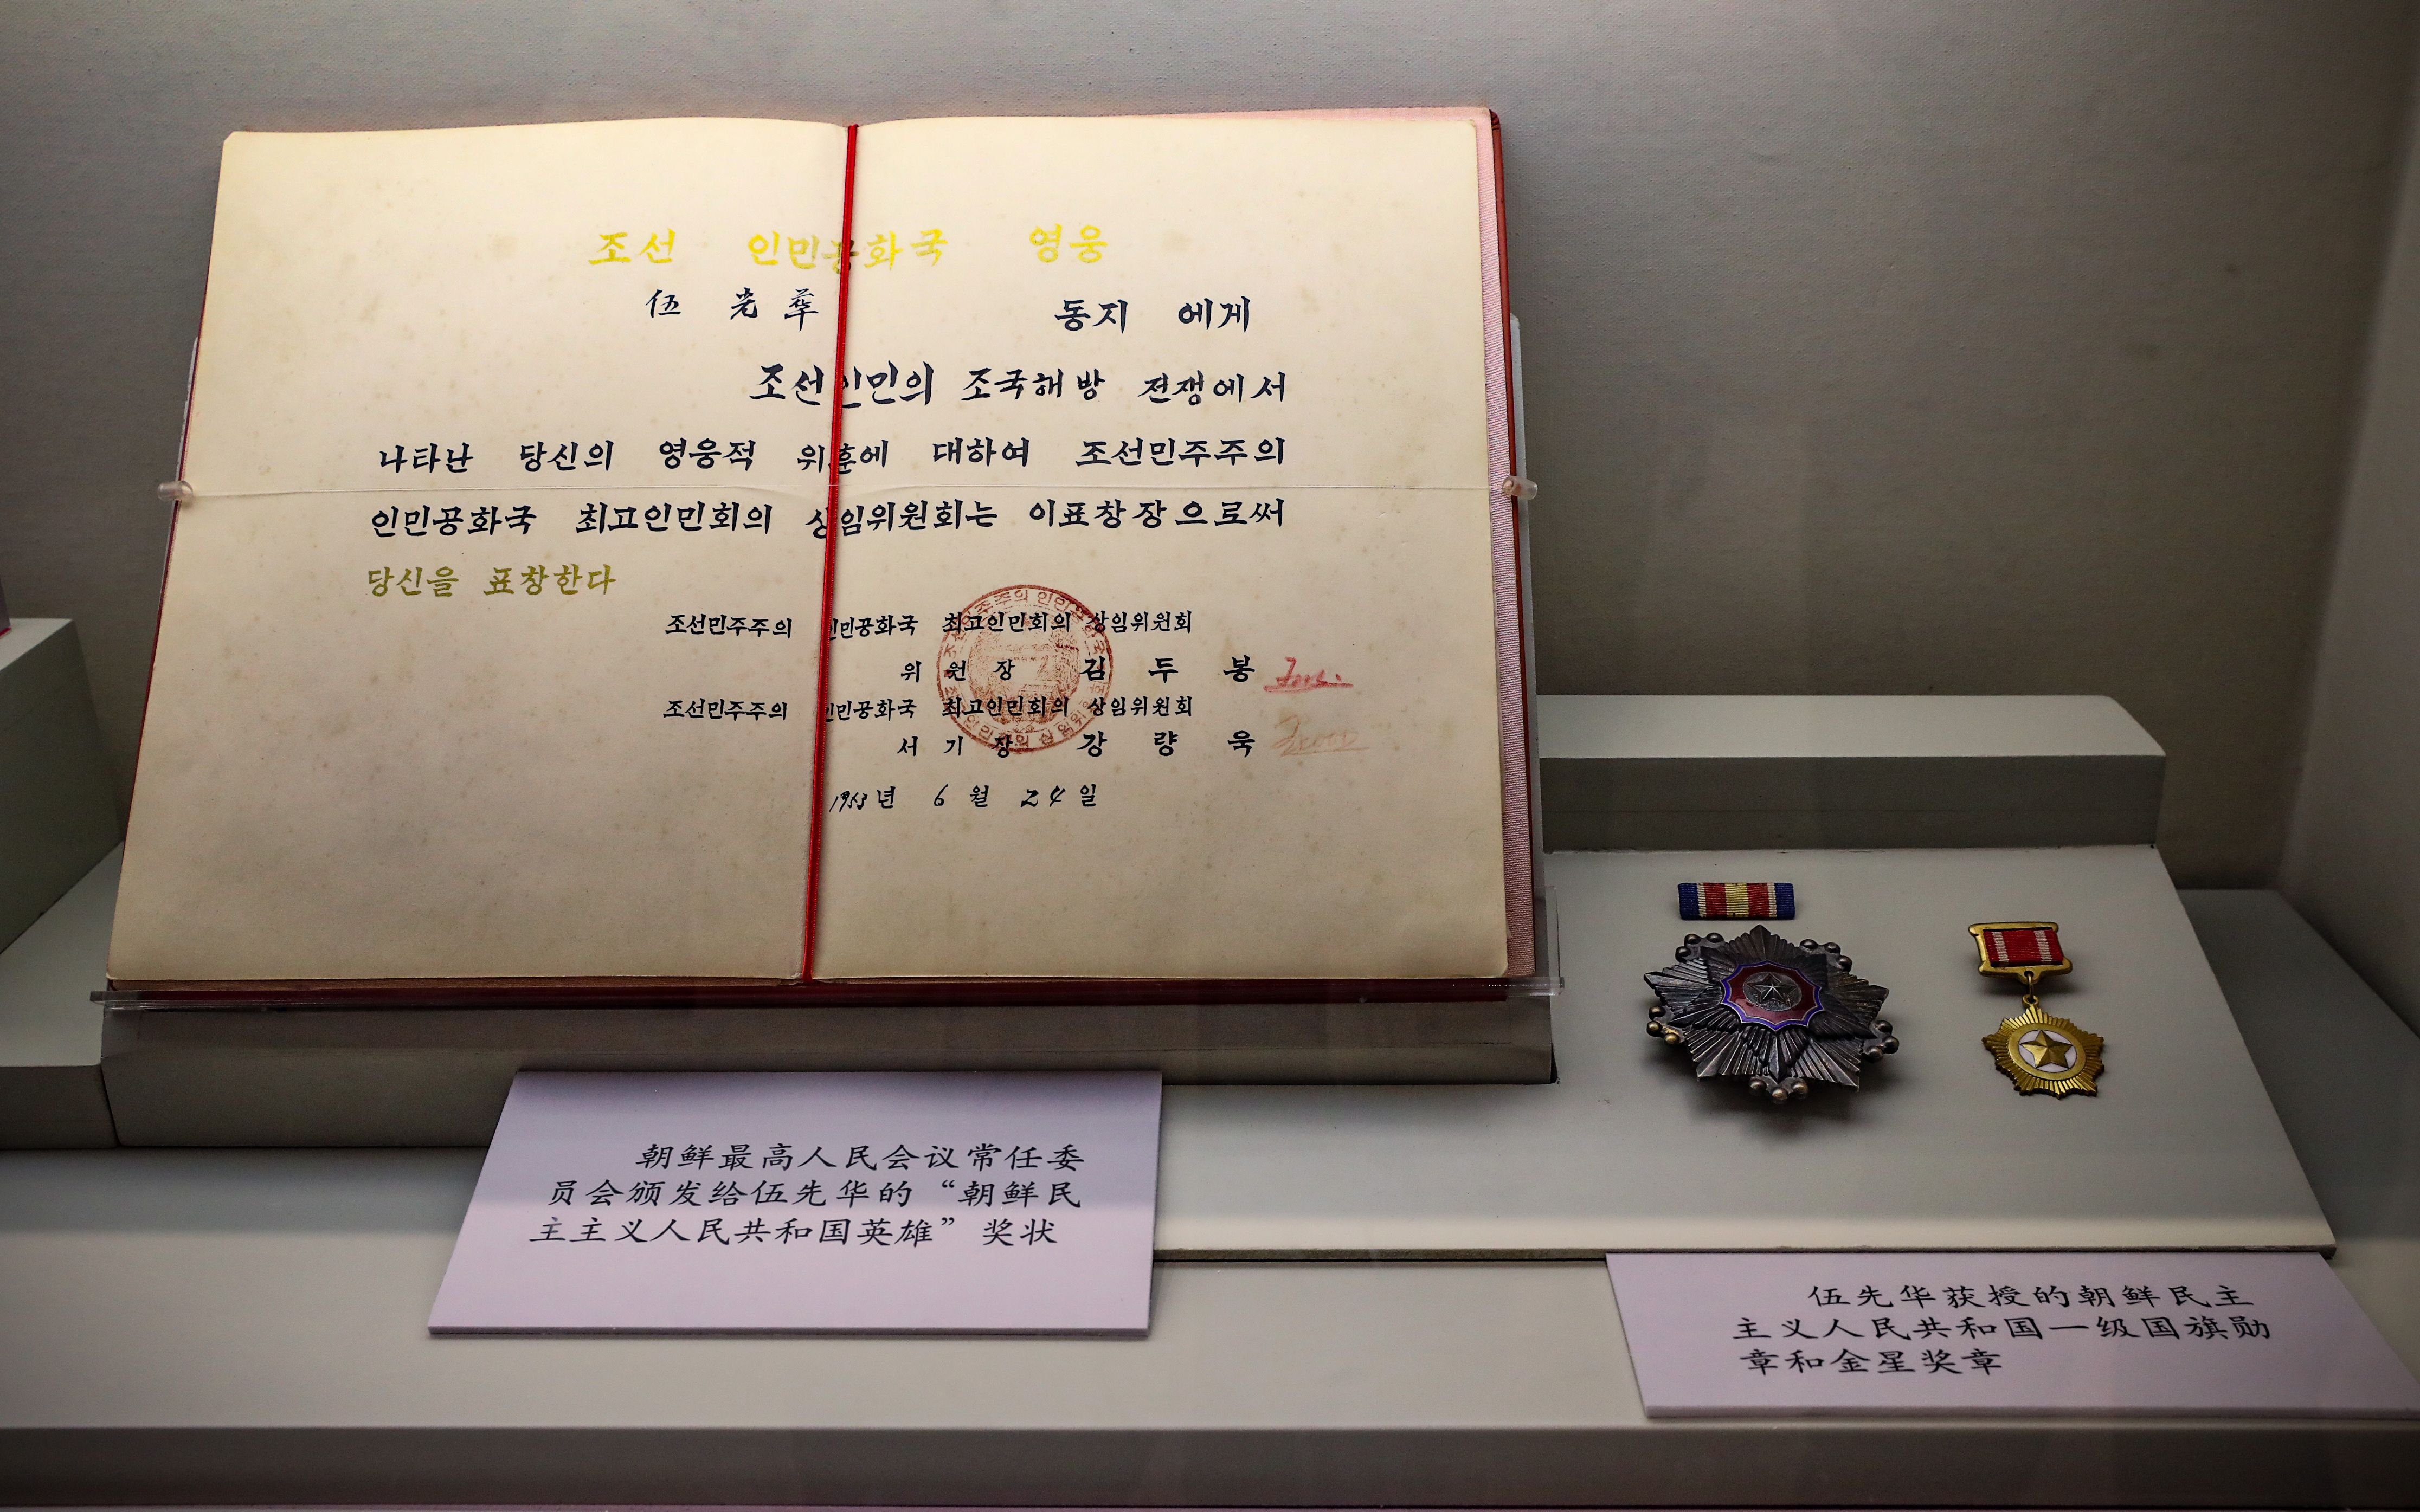 조선 인민공화국 영웅
伍 光 華 동지 에게
조선인민의 조국해방 전쟁에서
나타난 당신의 영웅적 위훈에 대하여 조선민주주의
인민공화국 최고인민회의 상임위원회는 이표창장으로써
당신을 표창한다
조선민주주의 인민공화국 최고인민회의 상임위원회
위 원 장 김 두 봉
조선민주주의 인민공화국 최고인민회의 상임위원회
서 기 장 강 량 욱
1953년 6 월 24 일
朝鲜最高人民会议常任委
员会颁发给伍先华的“朝鲜民
主主义人民共和国英雄”奖状
伍先华获授的朝鲜民主
主义人民共和国一级国旗勋
章和金星奖章